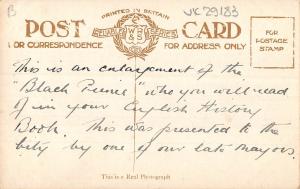 B
VK 29183
PRINTED IN BRITAIN
POST CARD
RELIABLE WR&S SERIES
OR CORRESPONDENCE
FOR ADDRESS ONLY
FOR POSTAGE STAMP
This is an enlargement of the
"Black Prince" who you will read
of in your English History
Book. This was presented to the
City by one of our late Mayors.
This is a Real Photograph